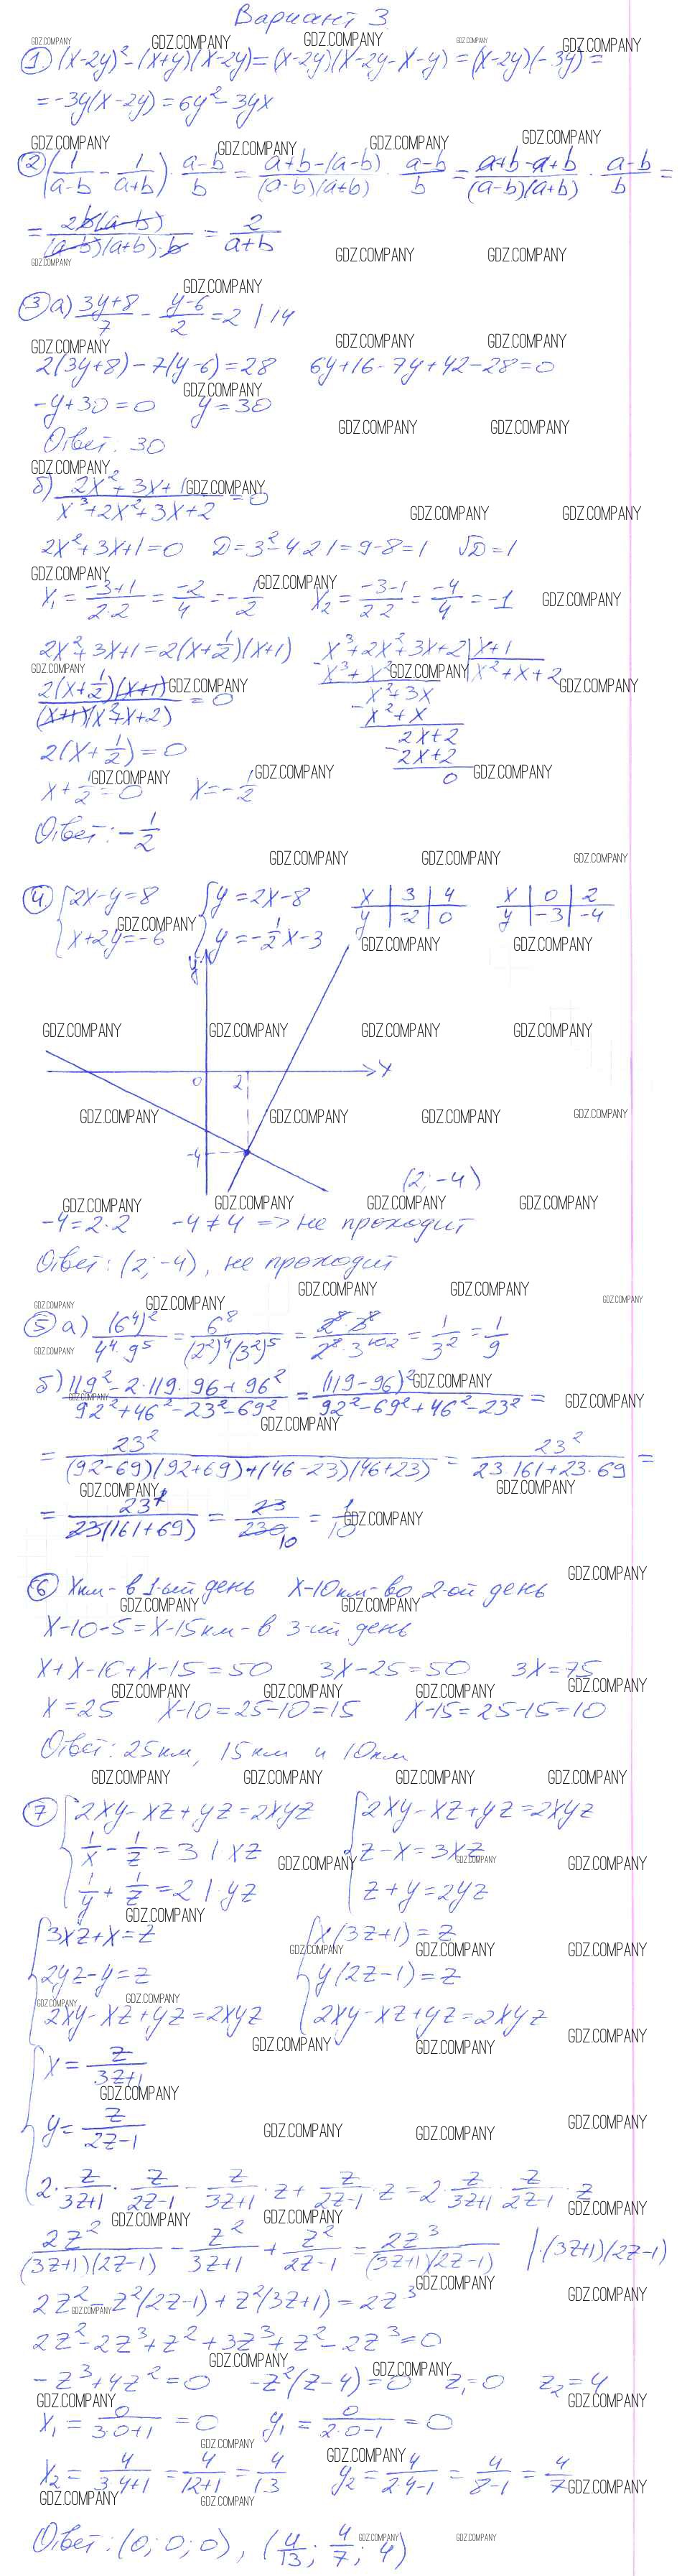 Вариант 3
① (x-2y)² - (x+y)(x-2y) = (x-2y)(x-2y-x-y) = (x-2y)(-3y) =
= -3y(x-2y) = 6y² - 3yx
② (1/(a-b) - 1/(a+b)) · (a-b)/b = (a+b-(a-b))/((a-b)(a+b)) · (a-b)/b = (a+b-a+b)/((a-b)(a+b)) · (a-b)/b =
= 2b(a-b)/((a-b)(a+b)·b) = 2/(a+b)
③ а) (3y+8)/7 - (y-6)/2 = 2 | 14
2(3y+8) - 7(y-6) = 28 6y+16-7y+42-28=0
-y+30=0 y=30
Ответ: 30
б) (2x²+3x+1)/(x³+2x²+3x+2) = 0
2x²+3x+1=0 D=3²-4·2·1=9-8=1 √D=1
x₁ = (-3+1)/(2·2) = -2/4 = -1/2 x₂ = (-3-1)/(2·2) = -4/4 = -1
2x²+3x+1=2(x+1/2)(x+1) x³+2x²+3x+2 | x+1
- x³+x² x²+x+2
2(x+1/2)(x+1)/((x+1)(x²+x+2)) = 0 x²+3x
- x²+x
2(x+1/2)=0 2x+2
- 2x+2
x+1/2=0 x=-1/2 0
Ответ: -1/2
④ {2x-y=8 {y=2x-8 x | 3 | 4 x | 0 | 2
y | -2 | 0 y | -3 | -4
{x+2y=-6 {y=-1/2x-3
y
0 2 x
-4
(2; -4)
-4=2·2 -4≠4 => не проходит
Ответ: (2; -4), не проходит
⑤ а) (6⁴)²/(4⁴·9⁵) = 6⁸/((2²)⁴(3²)⁵) = 2⁸·3⁸/(2⁸·3¹⁰ ²) = 1/3² = 1/9
б) (119²-2·119·96+96²)/(92²+46²-23²-69²) = (119-96)²/(92²-69²+46²-23²) =
= 23²/((92-69)(92+69)+(46-23)(46+23)) = 23²/(23·161+23·69) =
= 23²/(23(161+69)) = 23/230 10 = 1/10
⑥ x км - в 1-ый день x-10 км - во 2-ой день
x-10-5=x-15 км - в 3-ий день
x+x-10+x-15=50 3x-25=50 3x=75
x=25 x-10=25-10=15 x-15=25-15=10
Ответ: 25 км, 15 км и 10 км
⑦ {2xy-xz+yz=2xyz {2xy-xz+yz=2xyz
1/x - 1/z = 3 | xz z-x=3xz
1/y + 1/z = 2 | · yz z+y=2yz
{3xz+x=z {x(3z+1)=z
2yz-y=z y(2z-1)=z
2xy-xz+yz=2xyz 2xy-xz+yz=2xyz
{x = z/(3z+1)
y = z/(2z-1)
2 · z/(3z+1) · z/(2z-1) - z/(3z+1) · z + z/(2z-1) · z = 2 · z/(3z+1) · z/(2z-1) · z
2z²/((3z+1)(2z-1)) - z²/(3z+1) + z²/(2z-1) = 2z³/((3z+1)(2z-1)) | ·(3z+1)(2z-1)
2z² - z²(2z-1) + z²(3z+1) = 2z³
2z²-2z³+z²+3z³+z²-2z³=0
-z³+4z²=0 -z²(z-4)=0 z₁=0 z₂=4
x₁ = 0/(3·0+1) = 0 y₁ = 0/(2·0-1) = 0
x₂ = 4/(3·4+1) = 4/(12+1) = 4/13 y₂ = 4/(2·4-1) = 4/(8-1) = 4/7
Ответ: (0; 0; 0), (4/13; 4/7; 4)
GDZ.COMPANY